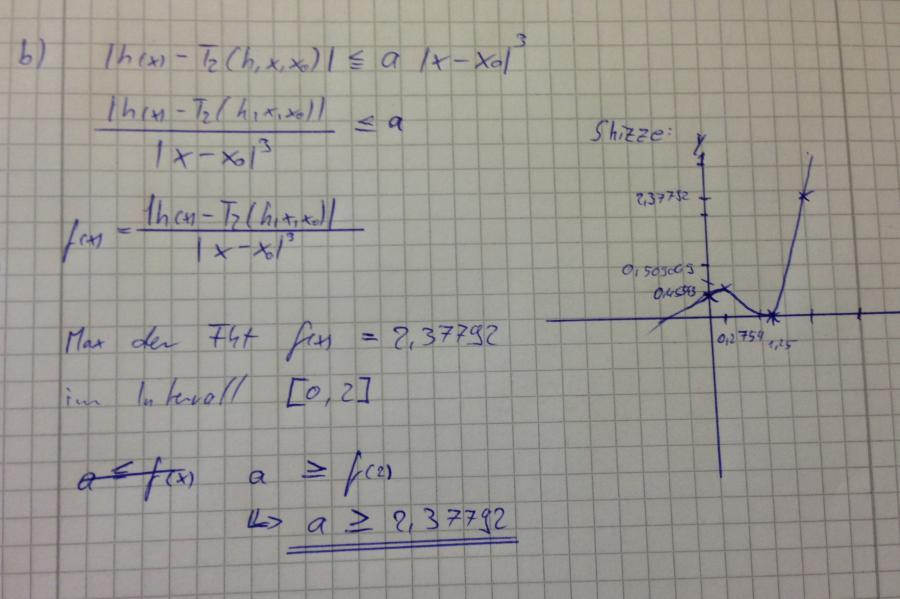 b) |h(x) - T₂(h,x,x₀)| ≤ a |x-x₀|³
|h(x) - T₂(h,x,x₀)| / |x-x₀|³ ≤ a
f(x) = |h(x) - T₂(h,x,x₀)| / |x-x₀|³
Max der Fkt f(x) = 2,37792
im Intervall [0,2]
a ≤ f(x) a ≥ f(2)
⇔ a ≥ 2,37792
Skizze:
y
1
2,37792
0,509009
0,2754
1,25